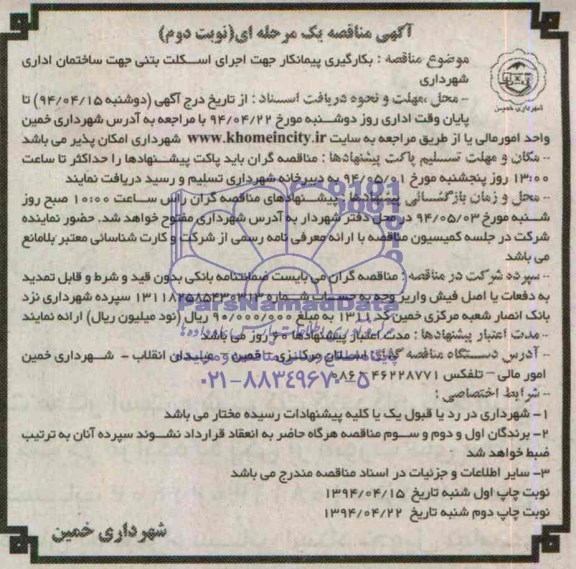 آگهی مناقصه یک مرحله ای(نوبت دوم)
موضوع مناقصه : بکارگیری پیمانکار جهت اجرای اسکلت بتنی جهت ساختمان اداری
شهرداری
شهرداری خمین
- محل ،مهلت و نحوه دریافت اسناد : از تاریخ درج آگهی (دوشنبه ۹۴/۰۴/۱۵) تا
پایان وقت اداری روز دوشنبه مورخ ۹۴/۰۴/۲۲ با مراجعه به آدرس شهرداری خمین
واحد امورمالی یا از طریق مراجعه به سایت www.khomeincity.ir شهرداری امکان پذیر می باشد
- مکان و مهلت تسلیم پاکت پیشنهادها : مناقصه گران باید پاکت پیشنهادها را حداکثر تا ساعت
۱۳:۰۰ روز پنجشنبه مورخ ۹۴/۰۵/۰۱ به دبیرخانه شهرداری تسلیم و رسید دریافت نمایند
- محل و زمان بازگشائی پیشنهادها : پیشنهادهای مناقصه گران راس ساعت ۱۰:۰۰ صبح روز
شنبه مورخ ۹۴/۰۵/۰۳ در محل دفتر شهردار به آدرس شهرداری مفتوح خواهد شد. حضور نماینده
شرکت در جلسه کمیسیون مناقصه با ارائه معرفی نامه رسمی از شرکت و کارت شناسائی معتبر بلامانع
می باشد
- سپرده شرکت در مناقصه : مناقصه گران می بایست ضمانتنامه بانکی بدون قید و شرط و قابل تمدید
به دفعات یا اصل فیش واریز وجه به حساب شماره سپرده شهرداری نزد
بانک انصار شعبه مرکزی خمین کد ۱۳۱۱ به مبلغ ۹۰/۰۰۰/۰۰۰ ریال (نود میلیون ریال) ارائه نمایند
- مدت اعتبار پیشنهادها : مدت اعتبار پیشنهادها ۶۰ روز می باشد
- آدرس دستگاه مناقصه گذار: استان مرکزی - خمین - میدان انقلاب - شهرداری خمین
امور مالی – تلفکس ۴۶۲۲۸۷۷۱ - ۰۸۶
ParsNamadData
پایگاه اطلاع رسانی مناقصه و مزایده
۰۲۱-۸۸۳۴۹۶۷۰-۵
- شرایط اختصاصی :
۱- شهرداری در رد یا قبول یک یا کلیه پیشنهادات رسیده مختار می باشد
۲- برندگان اول و دوم و سوم مناقصه هرگاه حاضر به انعقاد قرارداد نشوند سپرده آنان به ترتیب
ضبط خواهد شد
۳- سایر اطلاعات و جزئیات در اسناد مناقصه مندرج می باشد
نوبت چاپ اول شنبه تاریخ ۱۳۹۴/۰۴/۱۵
نوبت چاپ دوم شنبه تاریخ ۱۳۹۴/۰۴/۲۲
شهرداری خمین